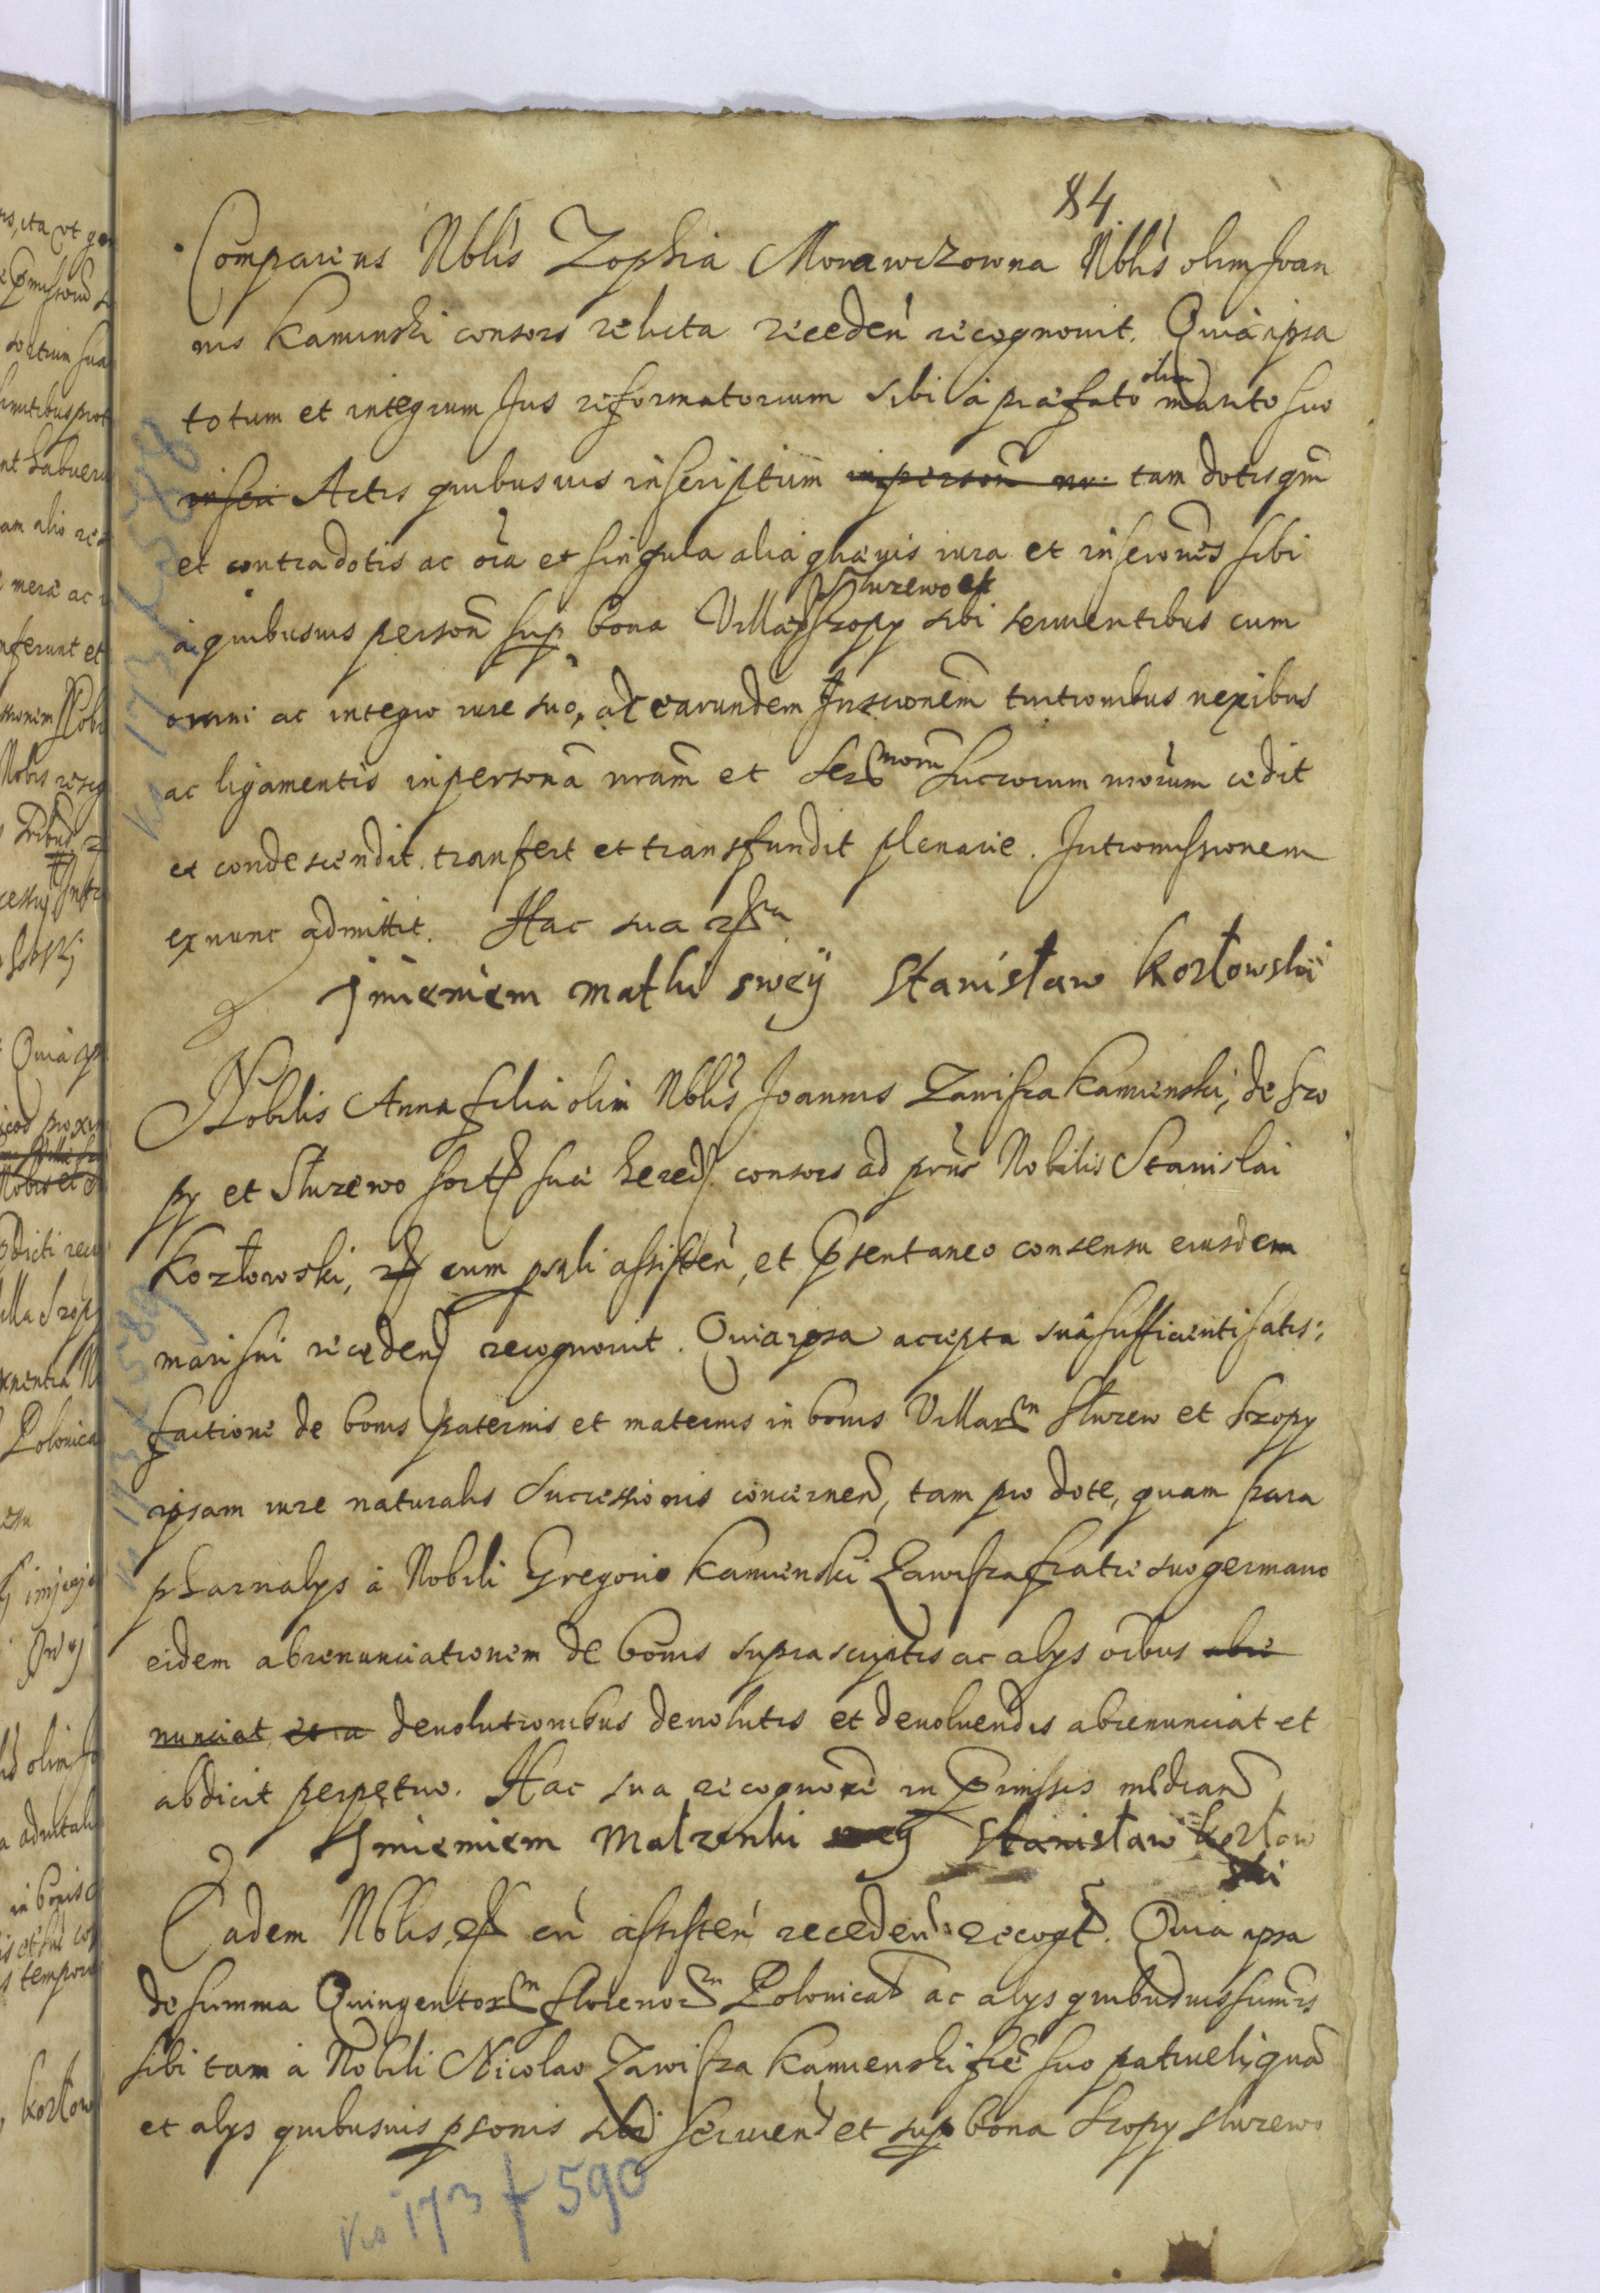 84.
Comparens Nblis Zophia Morawczowna Nblis olim Joan
nis Kamienski consors relicta receden recognovit. Quia ipsa
totum et integrum Jus reformatorium sibi a praefato olim marito suo
Actis quibusvis inscriptum in person tam dotis qm
et contradotis ac oia et singula alia qua vis iura et inscriones sibi
a quibusvis person sup bona Villar Skurewo et Szopy sibi servientibus cum
omni ac integro iure suo, ac earundem Inscrionem tuitionibus nexibus
ac ligamentis in persona nram et morum cedit
et condescendit tranfert et transfundit plenarie. Intromissionem
ex nunc admittit. Hac sua
Jmieniem matki swey Stanisław Kozłowski
Nobilis Anna filia olim Nblis Joannis Zawisza Kamienski, de Szo
py et Skurewo hered consors ad pns Nobilis Stanislai
Kozłowski, cum assisten, et psentaneo consensu eiusdem
mari sui receden recognovit. Quia ipsa accepta sua sufficienti satis:
factione de bonis paternis et maternis in bonis Villarum Skurew et Szopy
ipsam iure naturalis successionis concernen, tam pro dote, quam para
pharnalys a Nobili Gregorio Kamienski Zawisza fratre suo germano
eidem abrenunciationem de bonis suprascriptis ac alys oibus abre
nunciat et a devolutionibus devolutis et devoluendis abrenunciat et
abdicit perpetuo. Hac sua recognone in pmissis median
Jmieniem Malzenki swey Stanisław Kozłow
ski
Eadem Nblis, cu assisten receden recogt. Quia ipsa
de summa Quingentorum florenorum Polonical ac alys quibusvis summis
sibi tam a Nobili Nicolao Zawisza Kamienski fre suo patrueli qua
et alys quibusvis psonis sibi servien et sup bona Szopy Skurewo
173 f 588
173 f 589
Ks 173 f 590